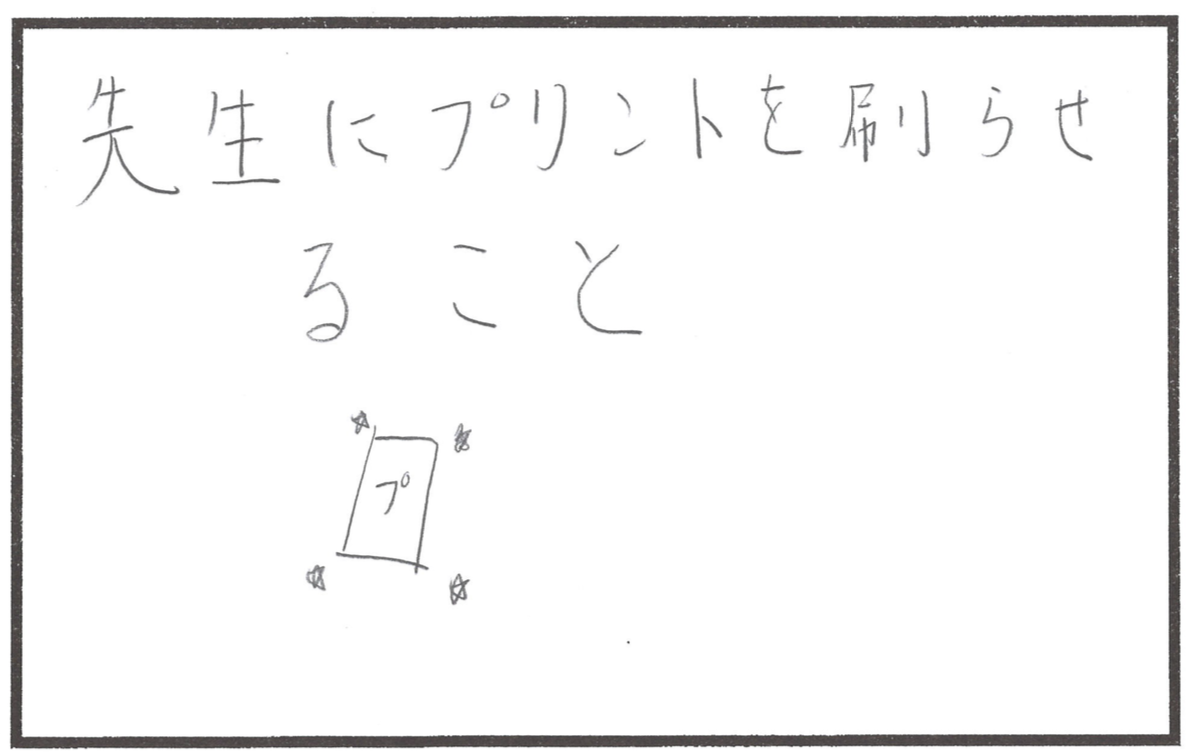 先生にプリントを刷らせ
ること
プ